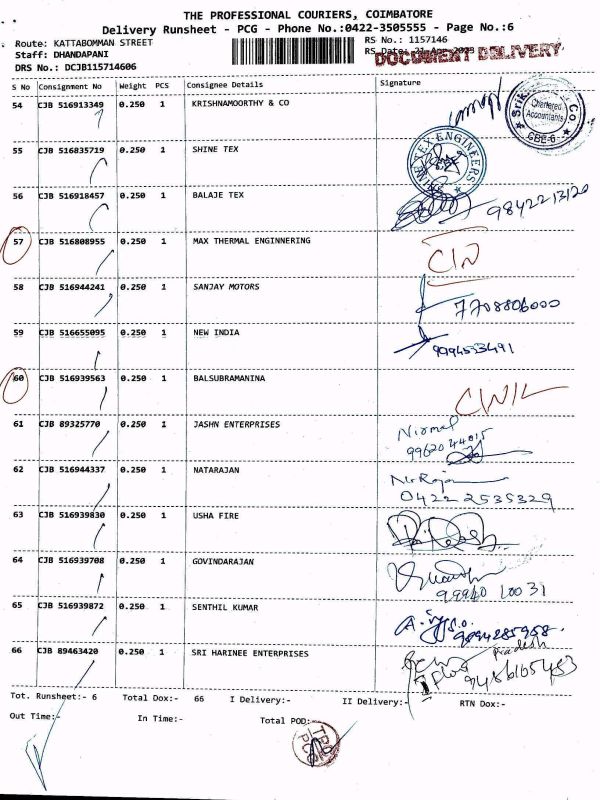 THE PROFESSIONAL COURIERS, COIMBATORE
Delivery Runsheet - PCG - Phone No.:0422-3505555 - Page No.:6
Route: KATTABOMMAN STREET
RS No.: 1157146
Staff: DHANDAPANI
RS Date: 21-Apr-2023
DOCUMENT DELIVERY
DRS No.: DCJB115714606
S No Consignment No Weight PCS Consignee Details Signature
54 CJB 516913349 0.250 1 KRISHNAMOORTHY & CO
Chartered Accountants
CBE-6
55 CJB 516835719 0.250 1 SHINE TEX
TEX ENGINEERS
56 CJB 516918457 0.250 1 BALAJE TEX
9842213120
57 CJB 516808955 0.250 1 MAX THERMAL ENGINNERING
58 CJB 516944241 0.250 1 SANJAY MOTORS
7708806000
59 CJB 516655095 0.250 1 NEW INDIA
9994533491
60 CJB 516939563 0.250 1 BALSUBRAMANINA
61 CJB 89325770 0.250 1 JASHN ENTERPRISES
Nirmal
62 CJB 516944337 0.250 1 NATARAJAN
0422 2535329
63 CJB 516939830 0.250 1 USHA FIRE
64 CJB 516939708 0.250 1 GOVINDARAJAN
65 CJB 516939872 0.250 1 SENTHIL KUMAR
9894285958
66 CJB 89463420 0.250 1 SRI HARINEE ENTERPRISES
Tot. Runsheet:- 6 Total Dox:- 66 I Delivery:- II Delivery:- RTN Dox:-
Out Time:- In Time:- Total POD:-